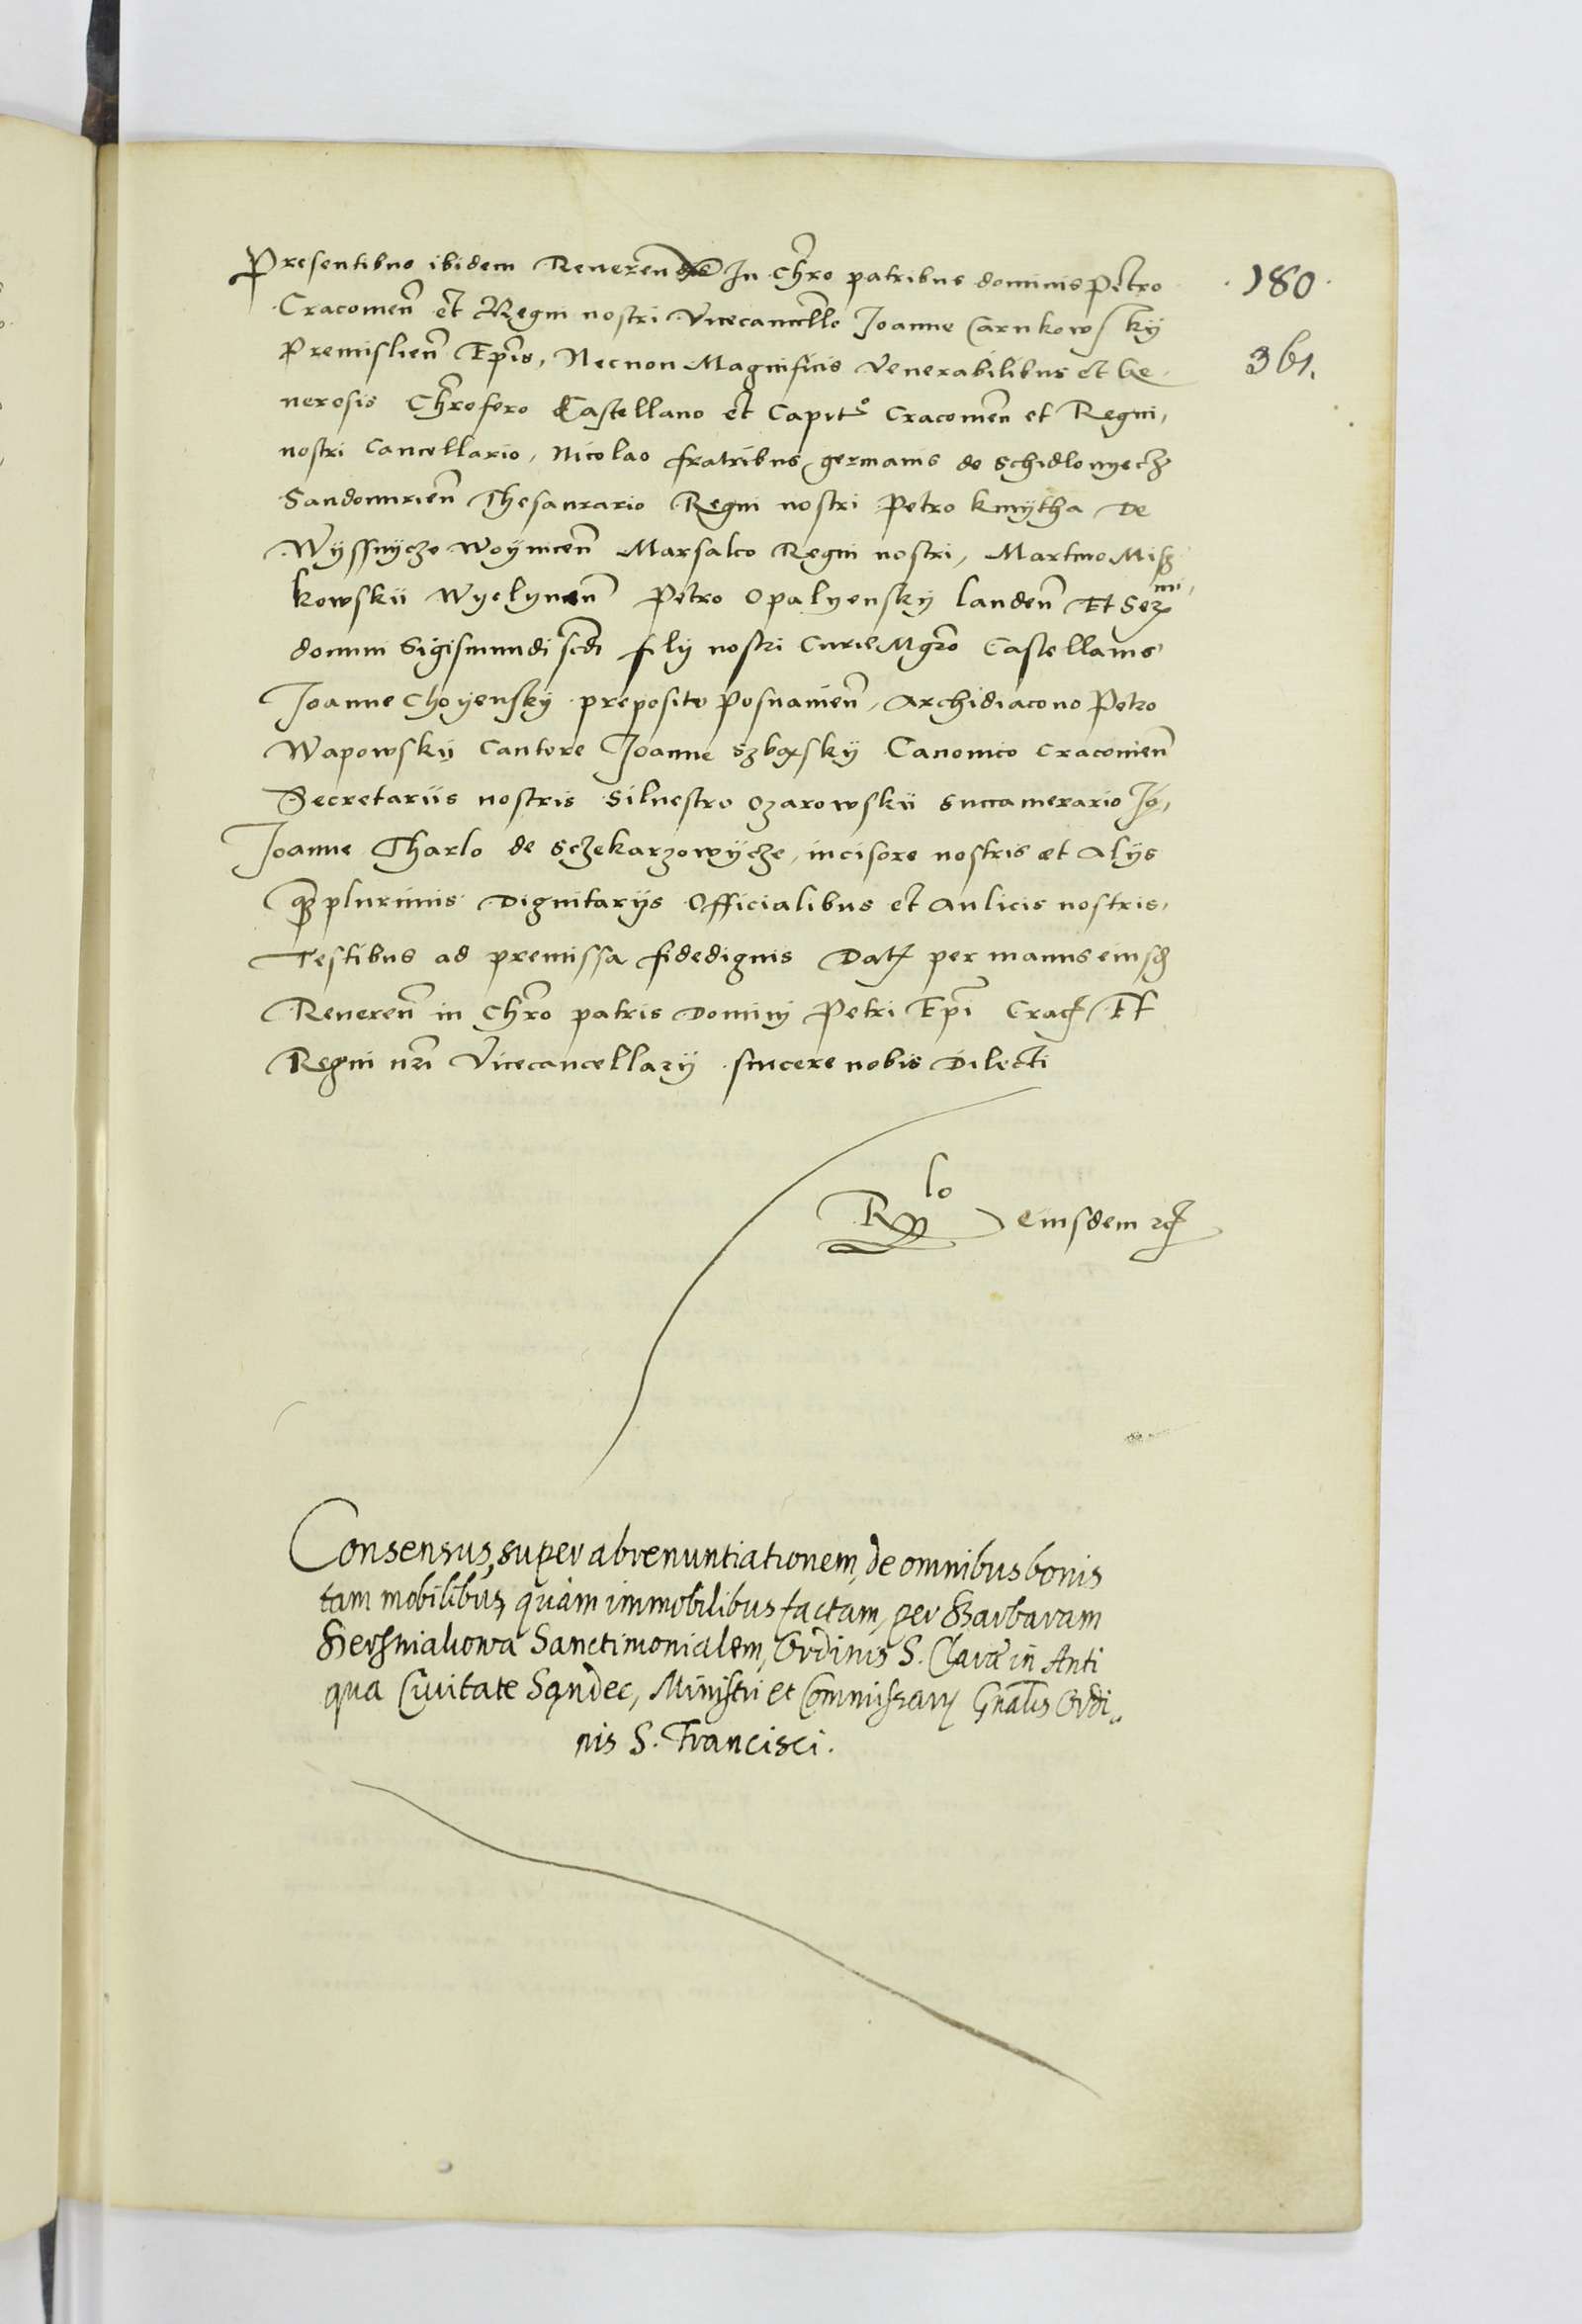 Presentibus ibidem Reverendis In Chro patribus dominis Petro
180
Cracovien et Regni nostri Vicecancello Joanne Carnkowsky
Premislien Epis, Necnon Magnificis Venerabilibus et Ge
361.
nerosis Chrofero Castellano et Capito Cracovien et Regni,
nostri Cancellario, Nicolao fratribus germanis de Schidlovyecz
Sandomirien Thesaurario Regni nostri Petro Kmytha De
Wyssnycze Woynicen Marsalco Regni nostri, Martino Misz
kowskii Wyelynen Petro Opalyensky Landen Et Ser mi
domini Sigismundi scdi filij nostri Curie Mgro Castellanis
Joanne Choyensky preposito Posnanien, Archidiacono Petro
Wapowskii Cantore Joanne Canonico Cracovien
Secretariis nostris Silvestro Ozarowskii Succamerario Jo,
Joanne Tharlo de Sczekarzowycze, incisore nostris et Alijs
qplurimis Dignitarijs Officialibus et Aulicis nostris,
Testibus ad premissa fidedignis Dat per manus eiusd
Reveren in Chro patris Dominj Petri Epi Crac Et
Regni nri Vicecancellarij sincere nobis Dilecti
Rlo eiusdem rc
Consensus, super abrenuntiationem, de omnibus bonis
tam mobilibus quàm immobilibus factam, per Barbaram
Sanctimonialem, Ordinis S. Claræ in Anti
qua Civitate Sandec, Ministri et Commissarij Gnalis Ordi„
nis S. Francisci.